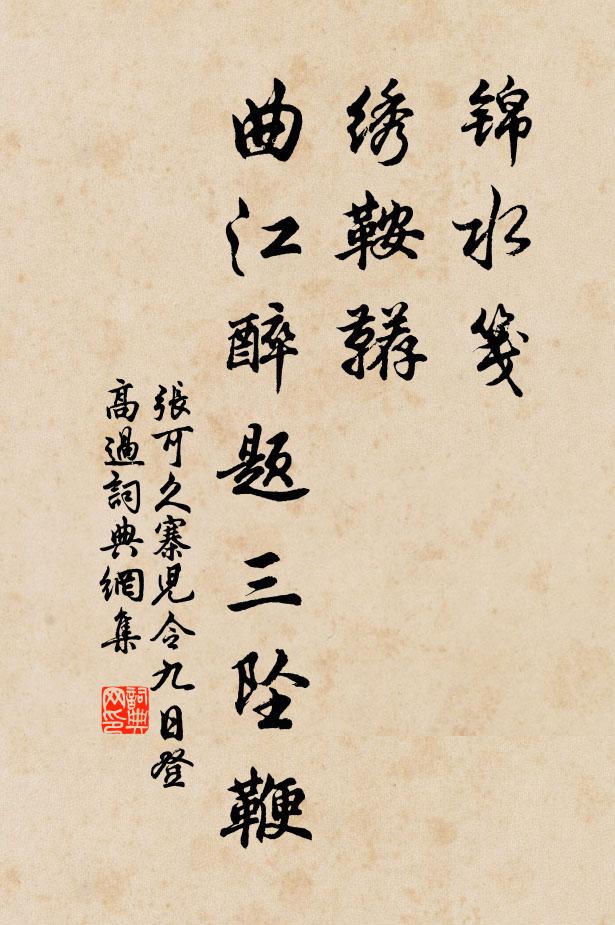 锦水笺
绣鞍鞯
曲江醉题三坠鞭
張可久寨児令九日登
高過詞典網集
詞典
网印